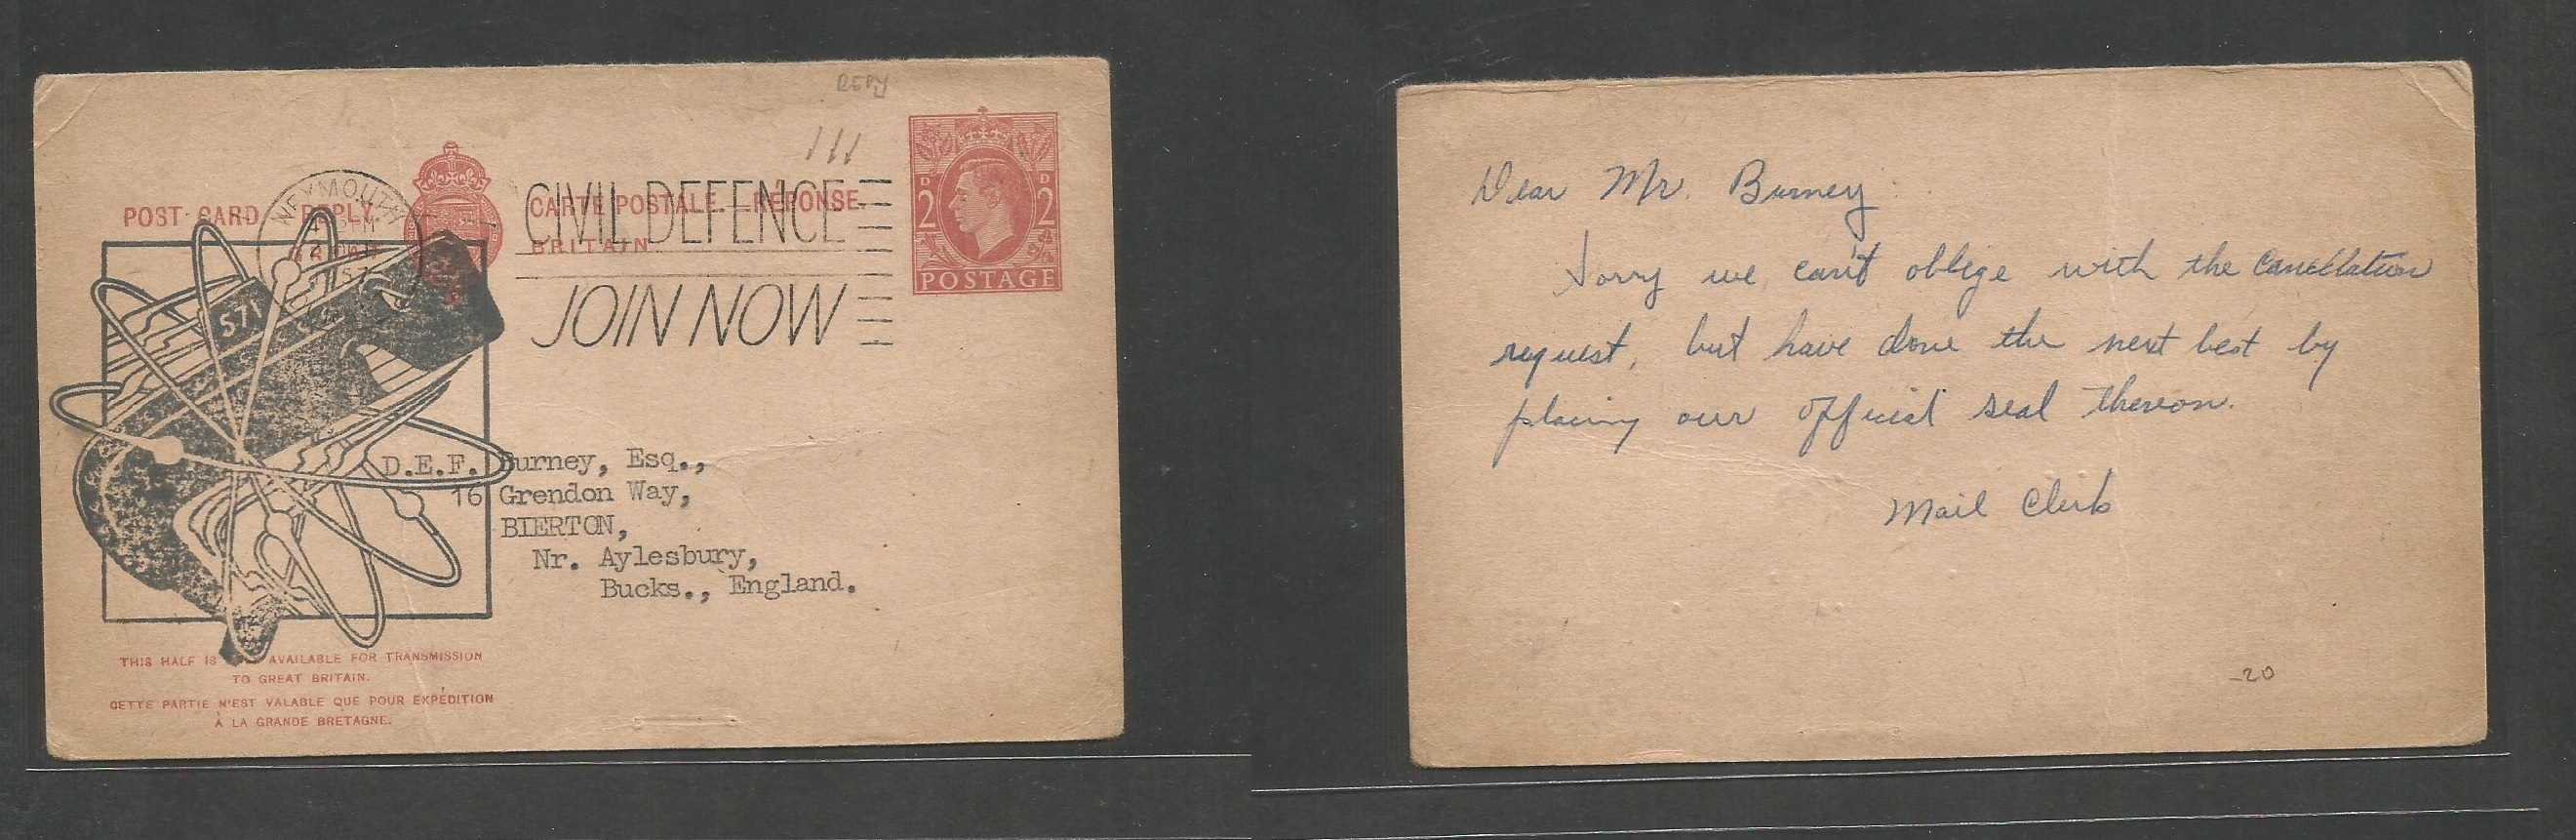 REPY
POST CARD REPLY.
CARTE POSTALE.—RÉPONSE.
BRITAIN
WEYMOUTH
57
CIVIL DEFENCE
JOIN NOW
2D
2D
POSTAGE
571
D.E.F. Burney, Esq.,
16 Grendon Way,
BIERTON,
Nr. Aylesbury,
Bucks., England.
THIS HALF IS AVAILABLE FOR TRANSMISSION
TO GREAT BRITAIN.
CETTE PARTIE N'EST VALABLE QUE POUR EXPÉDITION
À LA GRANDE BRETAGNE.
Dear Mr. Burney:
Sorry we can't oblige with the cancellation
request, but have done the next best by
placing our "official" seal thereon.
Mail Clerk
-20